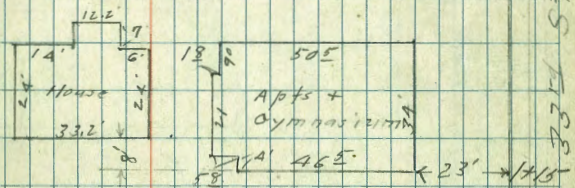 12.2'
7
14'
6'
24'
House
24'
33.2'
8'
18
90
505
Apts +
Gymnasium
34'
21
58
4'
465
23'
1+15
335